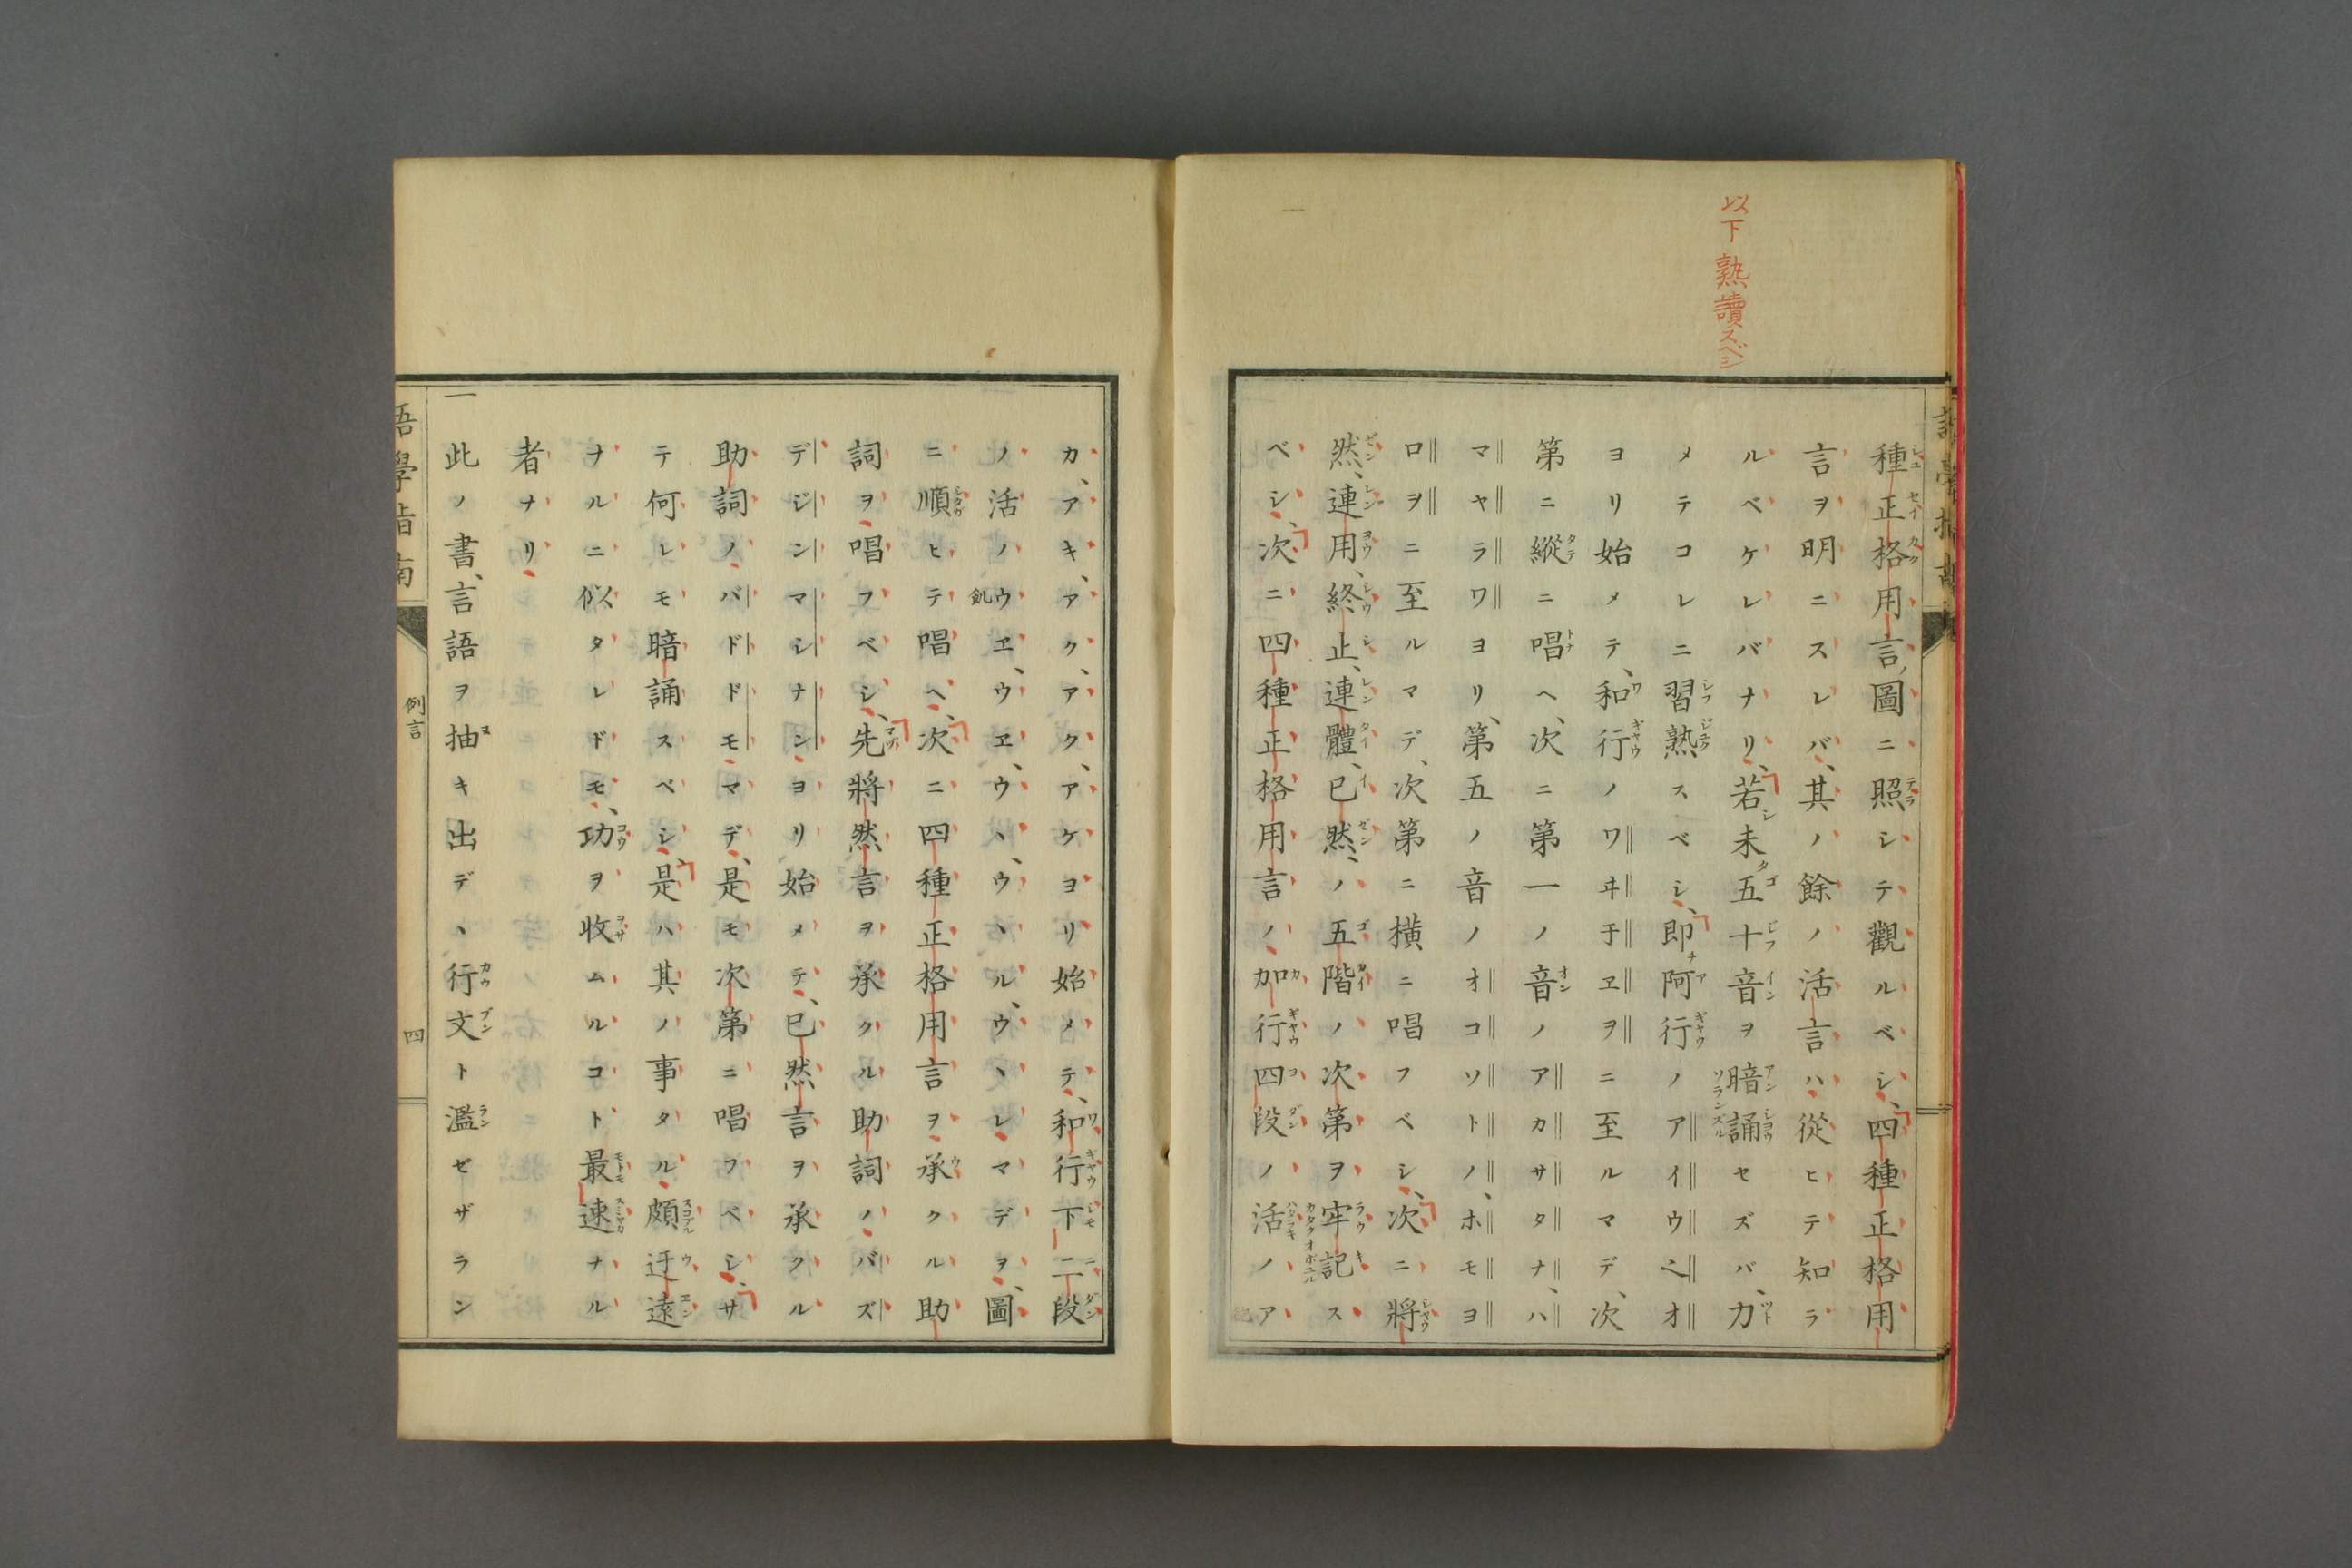 以下熟讀スベシ
種正格用言ノ圖ニ照シテ觀ルベシ、四種正格用
言ヲ明ニスレバ、其ノ餘ノ活言ハ從ヒテ知ラ
ルベケレバナリ、若シ未ダ五十音ヲ暗誦セズバ、力
メテコレニ習熟スベシ、即チ阿行ノアイウエオ
ヨリ始メテ、和行ノワヰ于ヱヲニ至ルマデ、次
第ニ縱ニ唱ヘ、次ニ第一ノ音ノアカサタナ、ハ
マヤラワヨリ、第五ノ音ノオコソトノ、ホモヨ
ロヲニ至ルマデ、次第ニ橫ニ唱フベシ、次ニ將
然、連用、終止、連體、已然、ノ五階ノ次第ヲ牢記ス
ベシ、次ニ四種正格用言ノ加行四段ノ活ノア
カ、アキ、アク、アク、アケヨリ始メテ、和行下二段
ノ活ノウヱ、ウヱ、ウヽ、ウヽル、ウヽレマデヲ、圖
ニ順ヒテ唱ヘ、次ニ四種正格用言ヲ承クル助
詞ヲ唱フベシ、先將然言ヲ承クル助詞ノバズ
デジンマシナンヨリ始メテ、已然言ヲ承クル
助詞ノバドドモマデ、是モ次第ニ唱フベシ、サ
テ何レモ暗誦スベシ、是ハ其ノ事タル頗迂遠
ナルニ似タレドモ、功ヲ收ムルコト最速ナル
者ナリ
一 此ノ書、言語ヲ抽キ出デヽ行文ト濫ゼザラン
語學指南
例言
四